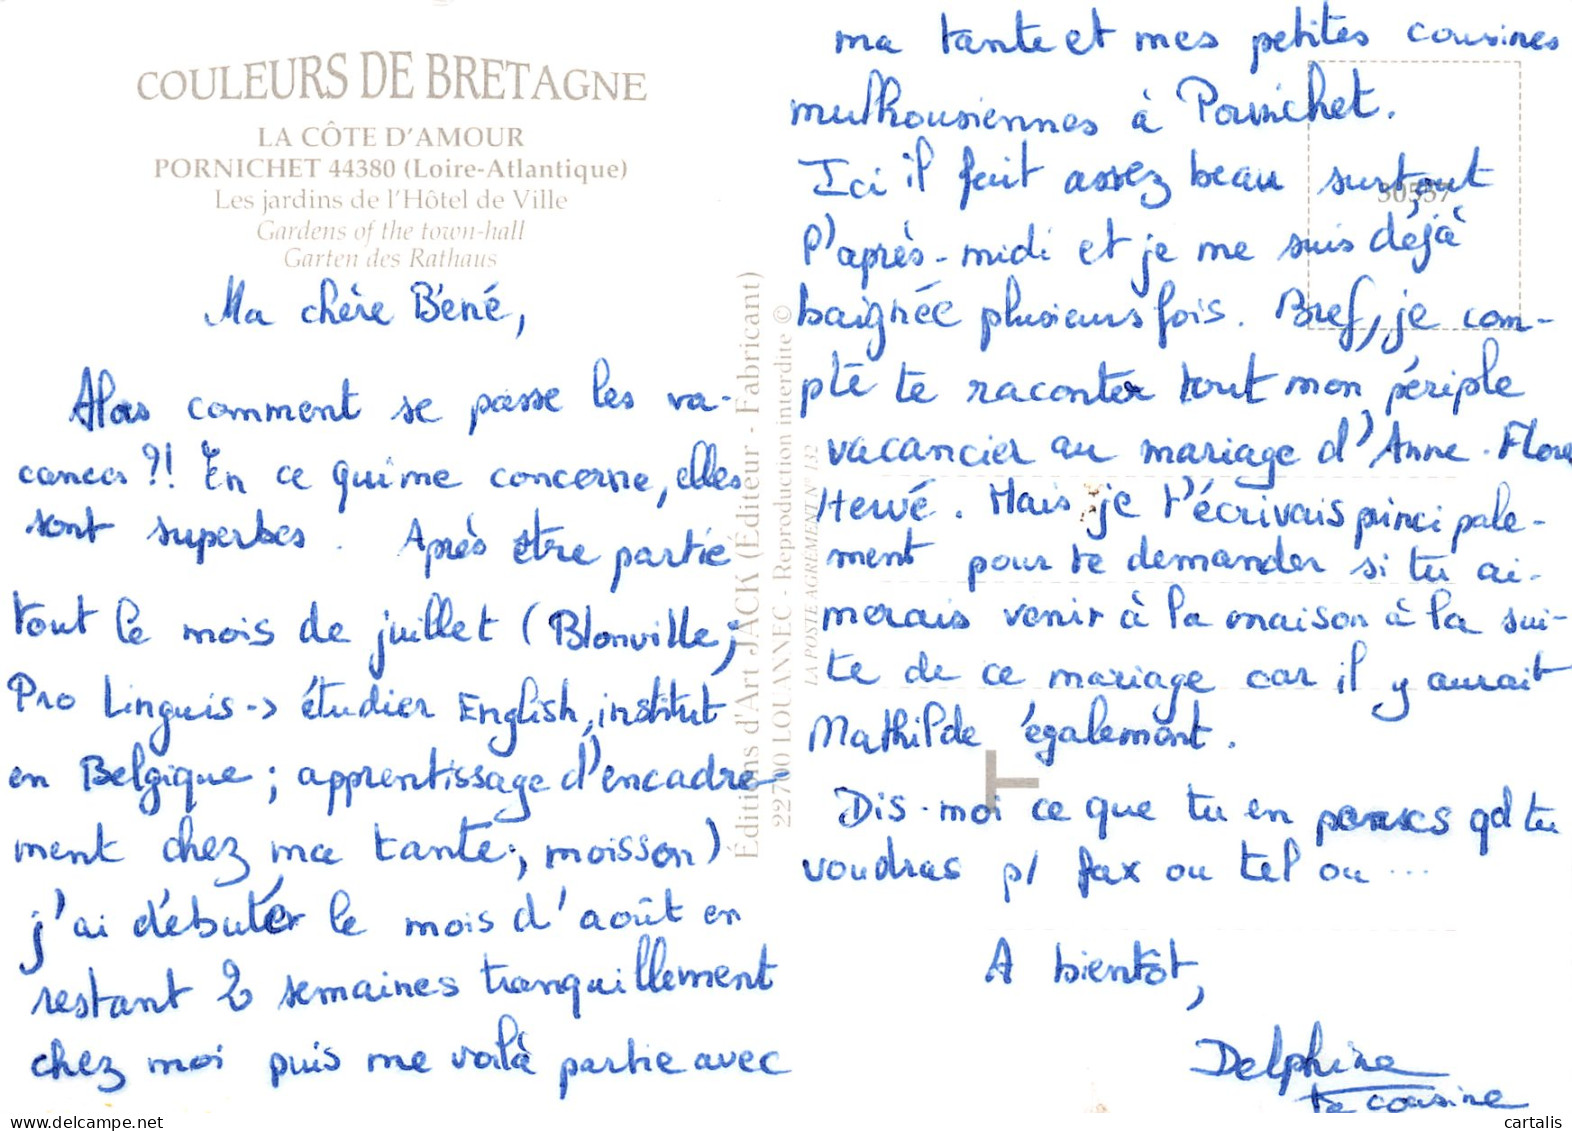 COULEURS DE BRETAGNE
LA CÔTE D'AMOUR
PORNICHET 44380 (Loire-Atlantique)
Les jardins de l'Hôtel de Ville
Gardens of the town-hall
Garten des Rathaus
Ma chère Béné,
Alors comment se passe les va-
cances ?! En ce qui me concerne, elles
sont superbes. Après être partie
tout le mois de juillet (Blonville ;
Pro Linguis -> étudier English, institut
en Belgique ; apprentissage d'encadre-
ment chez ma tante ; moisson)
j'ai débuter le mois d'août en
restant 2 semaines tranquillement
chez moi puis me voilà partie avec
Éditions d'Art JACK (Éditeur - Fabricant)
22700 LOUANNEC - Reproduction interdite ©
LA POSTE AGREMENT N° 132
30557
ma tante et mes petites cousines
mulhousiennes à Pornichet.
Ici il fait assez beau surtout
l'après-midi et je me suis déjà
baignée plusieurs fois. Bref, je com-
pte te raconter tout mon périple
vacancier au mariage d'Anne-Flore
Hervé. Mais je t'écrivais principale-
ment pour te demander si tu ai-
merais venir à la maison à la sui-
te de ce mariage car il y aurait
Mathilde également.
Dis-moi ce que tu en penses qd tu
voudras p/ fax ou tel ou ...
A bientôt,
Delphine
ta cousine
www.delcampe.net
cartalis